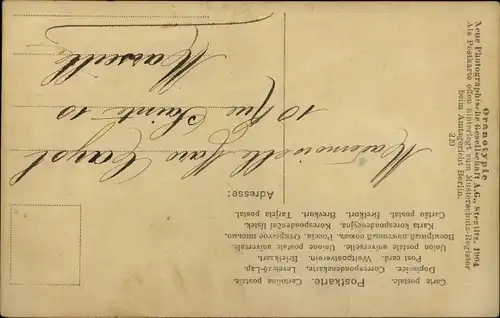 Oranotypie
Neue Photographische Gesellschaft A.G., Steglitz, 1904
Als Postkarte offen hinterlegt zum Musterschutz-Register
beim Amtsgericht Berlin.
220
Postkarte.
Carte postale. Cartolina postale.
Dopisnice. Correspondenzkarte. Levelező-Lap.
Post card. Weltpostverein. Briefkaart.
Union postale universelle. Unione postale universale.
Всемірный почтовый союзъ. Россія. Открытое письмо.
Karta korespondencyjna. Korespondenční lístek.
Cartão postal. Brefkort. Brevkort. Tarjeta postal.
Adresse:
Mademoiselle
10 Rue Sainte 10
Marseille